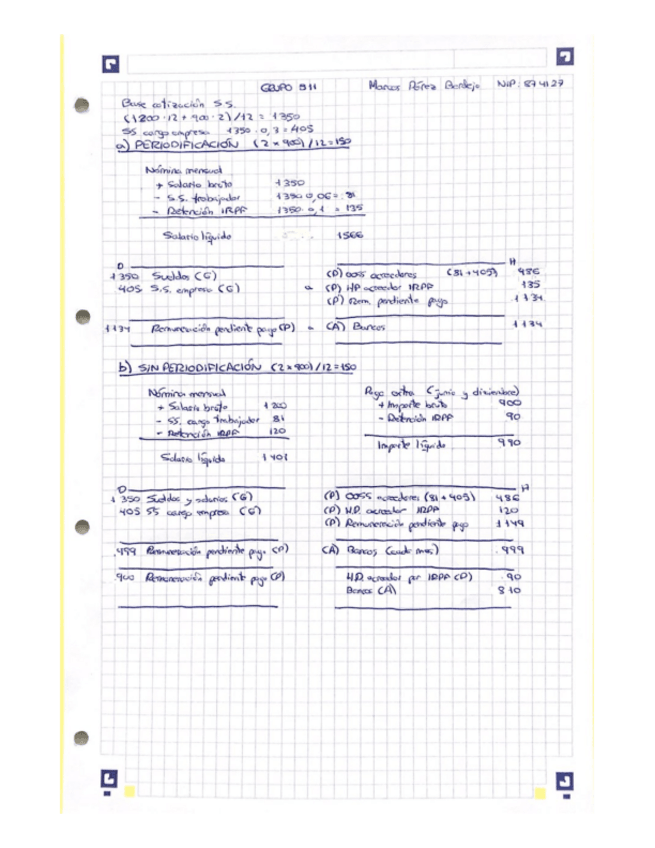 GRUPO 911 Marcos Pérez Bordejo NIP: 874127
Base cotización S.S.
(1200·12 + 900·2)/12 = 1350
SS cargo empresa 1350·0,3 = 405
a) PERIODIFICACIÓN (2 x 900)/12=150
Nómina mensual
+ Salario bruto 1350
- S.S. trabajador 1350·0,06 = 81
- Retención IRPF 1350·0,1 = 135
Salario líquido 1566
D H
1350 Sueldos (G) (P) OOSS acreedores (81+405) 486
405 S.S. empresa (G) a (P) HP acreedor IRPF 135
(P) Rem. pendiente pago 1134
1134 Remuneración pendiente pago (P) a (A) Bancos 1134
b) SIN PERIODIFICACIÓN (2 x 900)/12=150
Nómina mensual Paga extra (junio y diciembre)
+ Salario bruto 1200 + Importe bruto 900
- SS. cargo trabajador 81 - Retención IRPF 90
- Retención IRPF 120
Importe líquido 990
Salario líquido 1401
D H
1350 Sueldos y salarios (G) (P) OOSS acreedores (81+405) 486
405 SS cargo empresa (G) (P) H.P. acreedor IRPF 120
(P) Remuneración pendiente pago 1149
999 Remuneración pendiente pago (P) (A) Bancos (cada mes) 999
900 Remuneración pendiente pago (P) H.P. acreedor por IRPF (P) 90
Bancos (A) 810